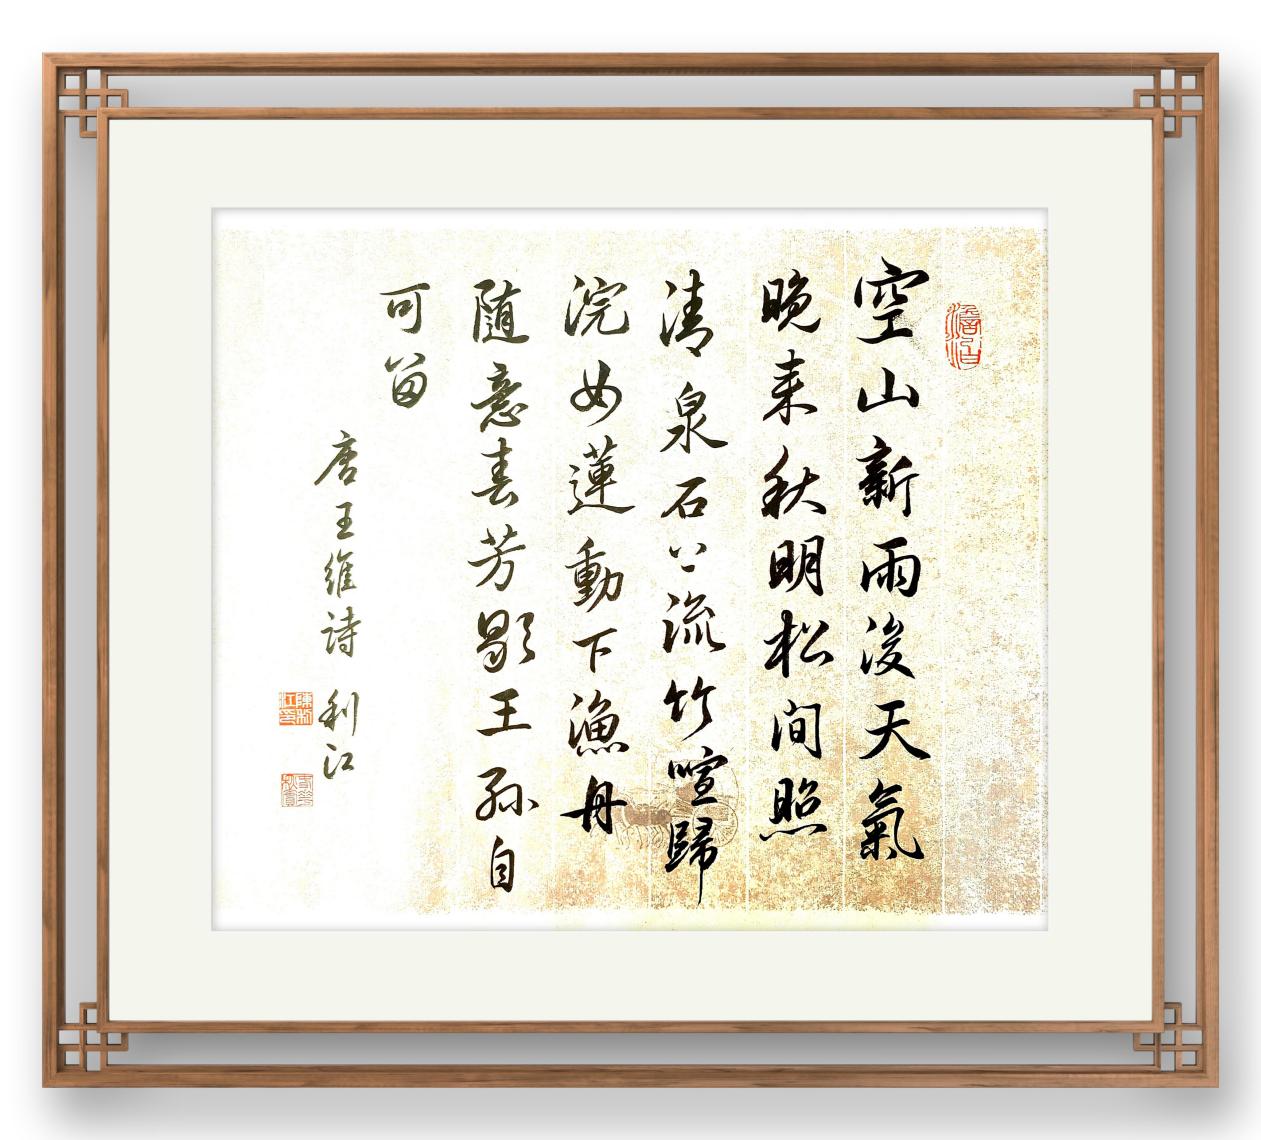 澹泊
空山新雨後天氣
晚来秋明松间照
清泉石上流竹喧歸
浣女蓮動下漁舟
随意春芳歇王孫自
可留
唐王維詩 利江
陳利江印